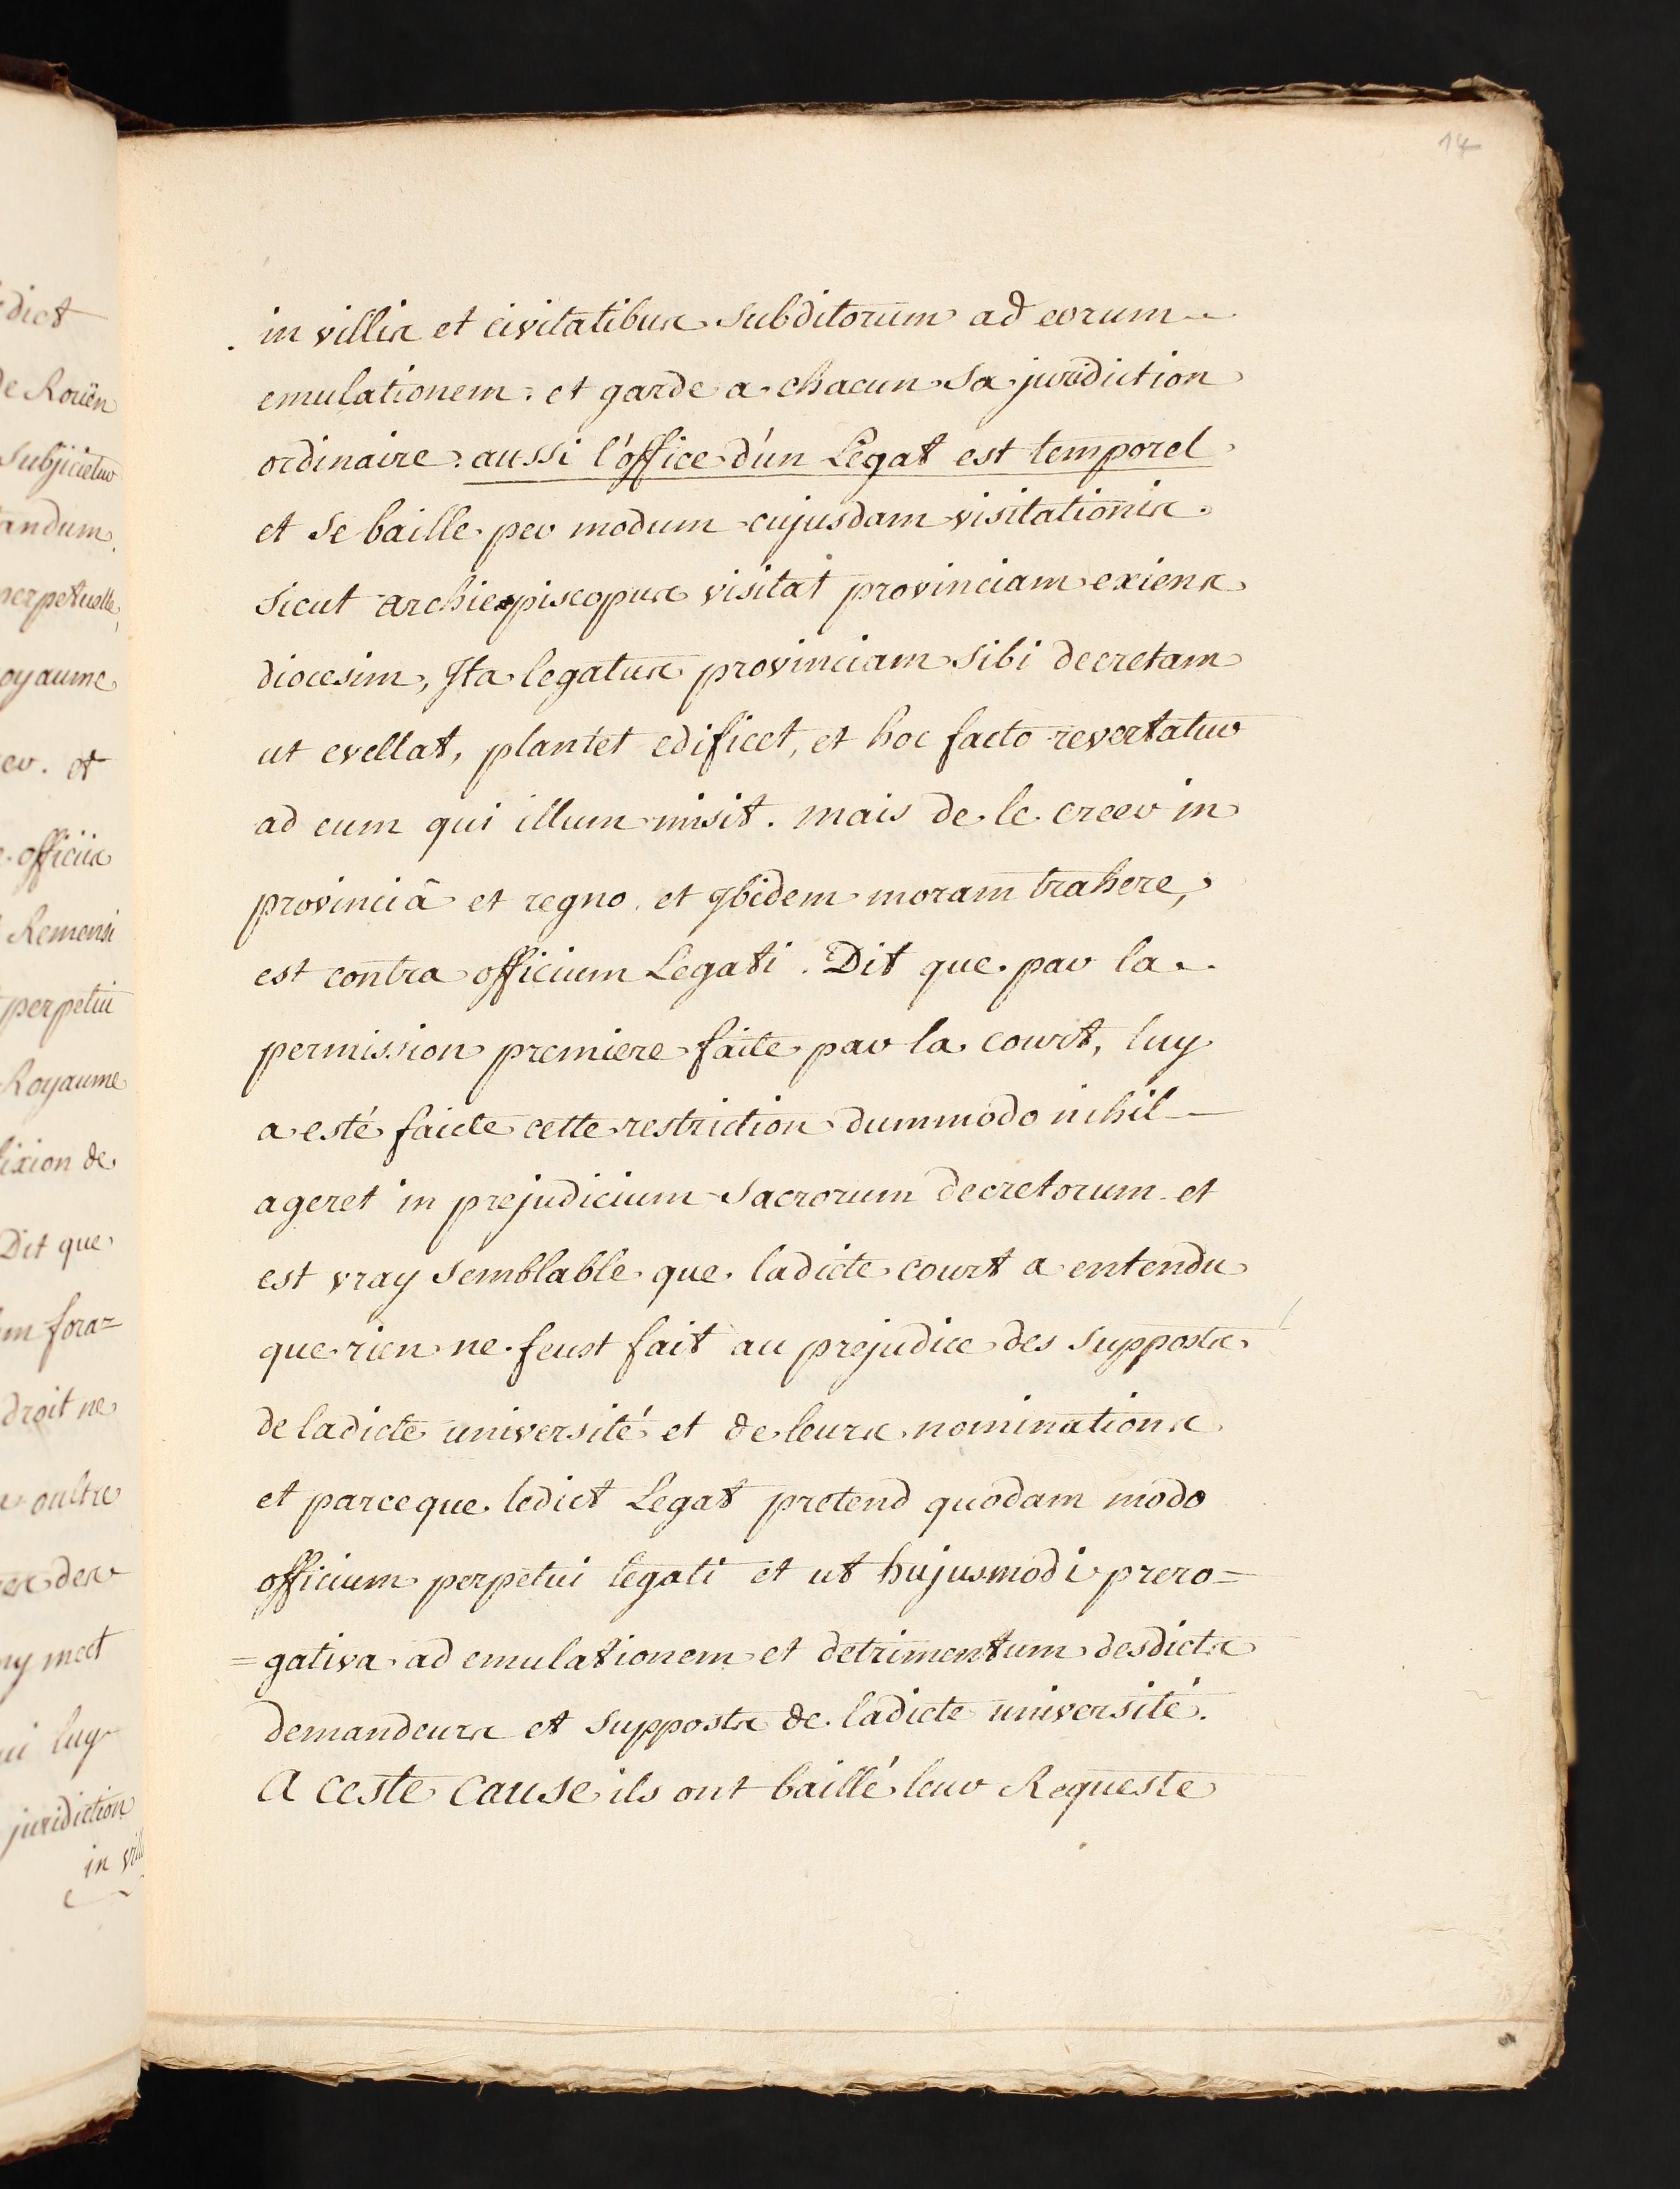 14
in villis et civitatibus subditorum ad eorum
emulationem. et garde a chacun sa juridiction
ordinaire. aussi l'office d'un Legat est temporel
et se baille per modum cujusdam visitationis.
sicut archiepiscopus visitat provinciam exiens
diocesim, Ita legatus provinciam sibi decretam
ut evellat, plantet edificet, et hoc facto revertatur
ad eum qui illum misit. mais de le creer in
provinciâ et regno et Ibidem moram trahere,
est contra officium Legati. Dit que par la
permission premiere faite par la court, luy
a esté faicte cette restriction dummodo nihil
ageret in prejudicium sacrorum decretorum et
est vray semblable que ladicte court a entendu
que rien ne feust fait au prejudice des supposts
de ladicte université et de leurs nominations
et parceque ledict Legat pretend quodam modo
officium perpetui legati et ut hujusmodi prero=
=gativa ad emulationem et detrimentum desdicts
demandeurs et supposts de ladicte université.
A ceste cause ils ont baillé leur Requeste
dict
de Roüen
subjicietur
andum.
perpetuelle,
oyaume
er. et
officiis
Remensi
perpetui
Royaume
fixion de
Dit que
m fora=
droit ne
oultre
des
ny mect
ui luy
juridiction
in vill